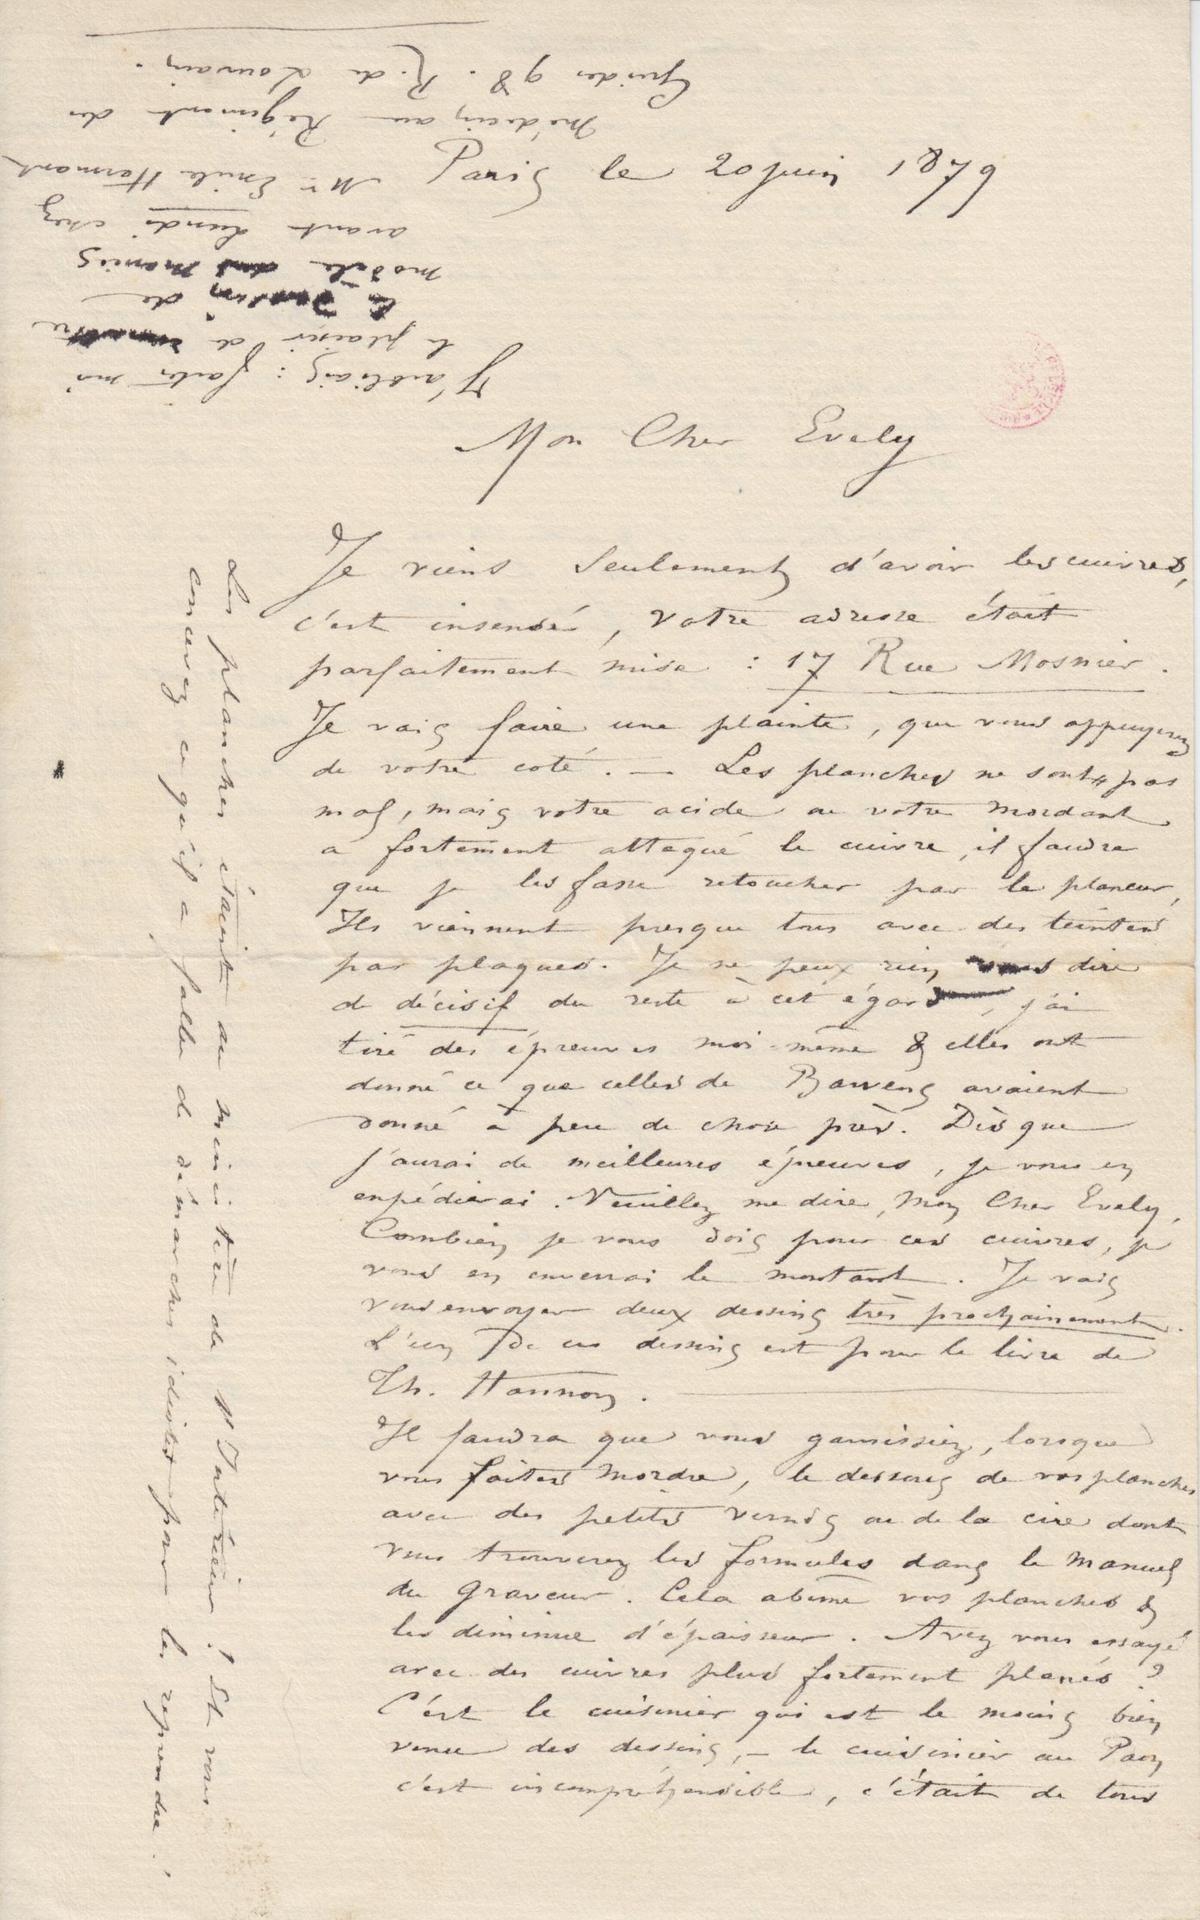 Paris le 20 juin 1879
Mon Cher Evely
Je viens seulement d'avoir les cuivres,
c'est insensé, votre adresse était
parfaitement mise : 17 Rue Mosnier.
Je vais faire une plainte, que vous appuyerez
de votre coté. — Les planches ne sont pas
mal, mais votre acide ou votre mordant
a fortement attaqué le cuivre, il faudra
que je les fasse retoucher par le planeur,
Ils viennent presque tous avec des teintes
par plaques. Je ne peux rien vous dire
de décisif du reste à cet égard, j'ai
tiré des épreuves moi-même & elles ont
donné ce que celles de Bauwens avaient
donné à peu de chose près. Dès que
j'aurai de meilleures épreuves, je vous en
expédierai. Veuillez me dire, Mon Cher Evely,
Combien je vous dois pour ces cuivres, je
vous en enverrai le montant. Je vais
vous envoyer deux dessins très prochainement.
L'un de ces dessins est pour le livre de
Th. Hannon. —
Il faudra que vous garnissiez, lorsque
vous faites mordre, le dessous de vos planches
avec des petits vernis ou de la cire dont
vous trouverez les formules dans le Manuel
du Graveur. Cela abime vos planches &
les diminue d'épaisseur. Avez vous essayé
avec des cuivres plus fortement planés ?
C'est le cuisinier qui est le moins bien
venu des dessins, — le cuisinier au Paon
c'est incompréhensible, c'était de tous
Les planches étaient au ministère de l'Intérieur ! Et vous
concevez ce qu'il a fallu de démarches idiotes pour les reprendre !
J'oubliais : faites moi
le plaisir de remettre
le dessin de
modèle
avant Lundi chez
Mr Emile Hermant
médecin au Régiment des
Guides 98. R. de Louvain.